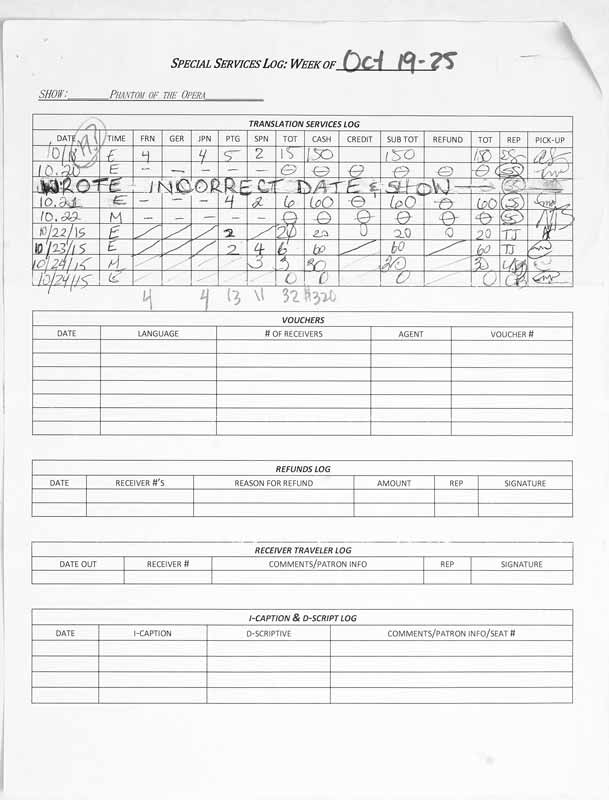 SPECIAL SERVICES LOG: WEEK OF Oct 19-25
SHOW: PHANTOM OF THE OPERA
TRANSLATION SERVICES LOG
DATE TIME FRN GER JPN PTG SPN TOT CASH CREDIT SUB TOT REFUND TOT REP PICK-UP
E 4 4 5 2 15 150 150 150
10.20 E – – – – – 0 0 0 0 0 0
WROTE INCORRECT DATE & SHOW
10.21 E – – – 4 2 6 60 0 60 0 60
10.22 M – – – – – 0 0 0 0 0 0
10/22/15 E / / / 2 / 20 0 20 0 20 TJ
10/23/15 E / / / 2 4 6 60 / 60 / 60 TJ
10/24/15 M / / / / 3 3 30 / 30 / 30
10/24/15 E / / / / / 0 0 / 0 / 0
4 4 13 11 32 $320
VOUCHERS
DATE LANGUAGE # OF RECEIVERS AGENT VOUCHER #
REFUNDS LOG
DATE RECEIVER #'S REASON FOR REFUND AMOUNT REP SIGNATURE
RECEIVER TRAVELER LOG
DATE OUT RECEIVER # COMMENTS/PATRON INFO REP SIGNATURE
I-CAPTION & D-SCRIPT LOG
DATE I-CAPTION D-SCRIPTIVE COMMENTS/PATRON INFO/SEAT #